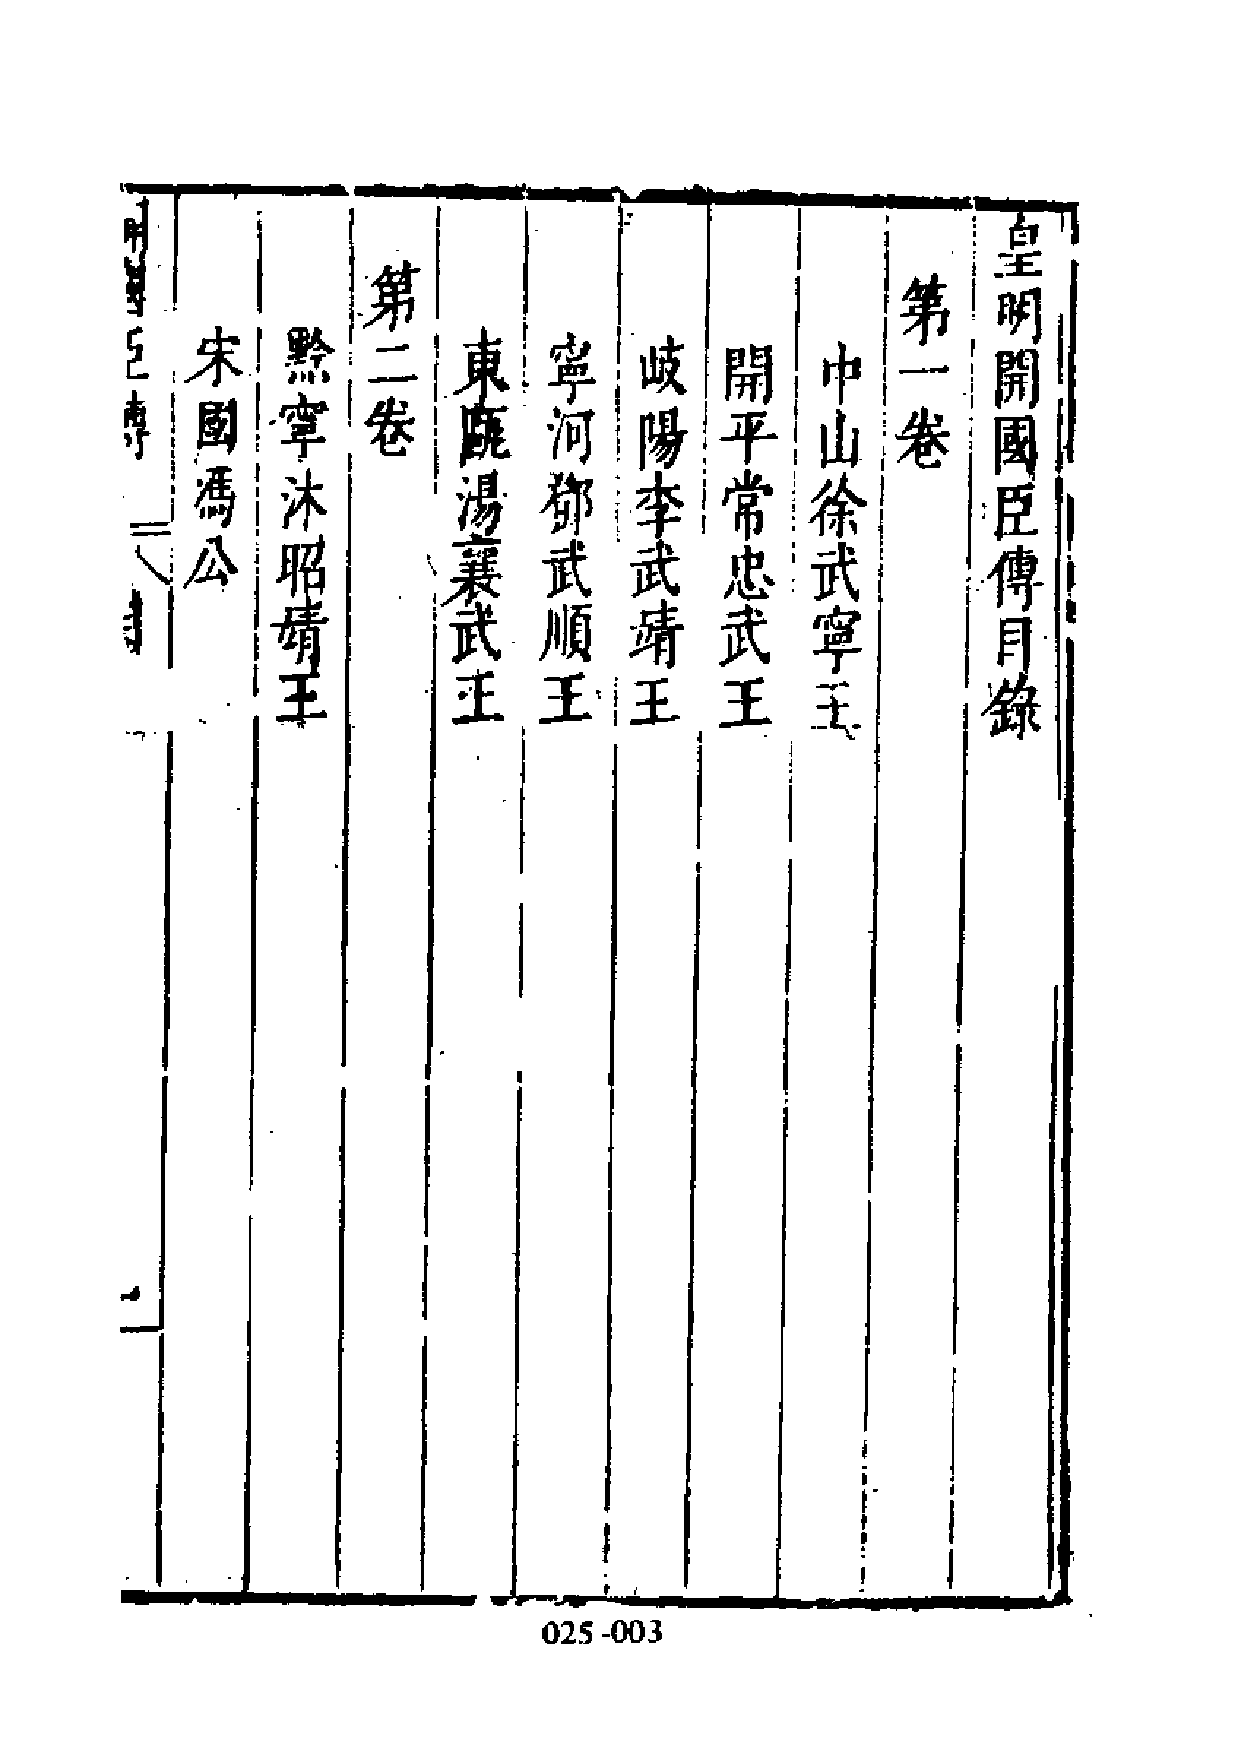 皇明開國臣傳目錄
第一卷
中山徐武寧王
開平常忠武王
岐陽李武靖王
寧河鄧武順王
東甌湯襄武王
第二卷
黔寧沐昭靖王
宋國馮公
臣傳
025-003